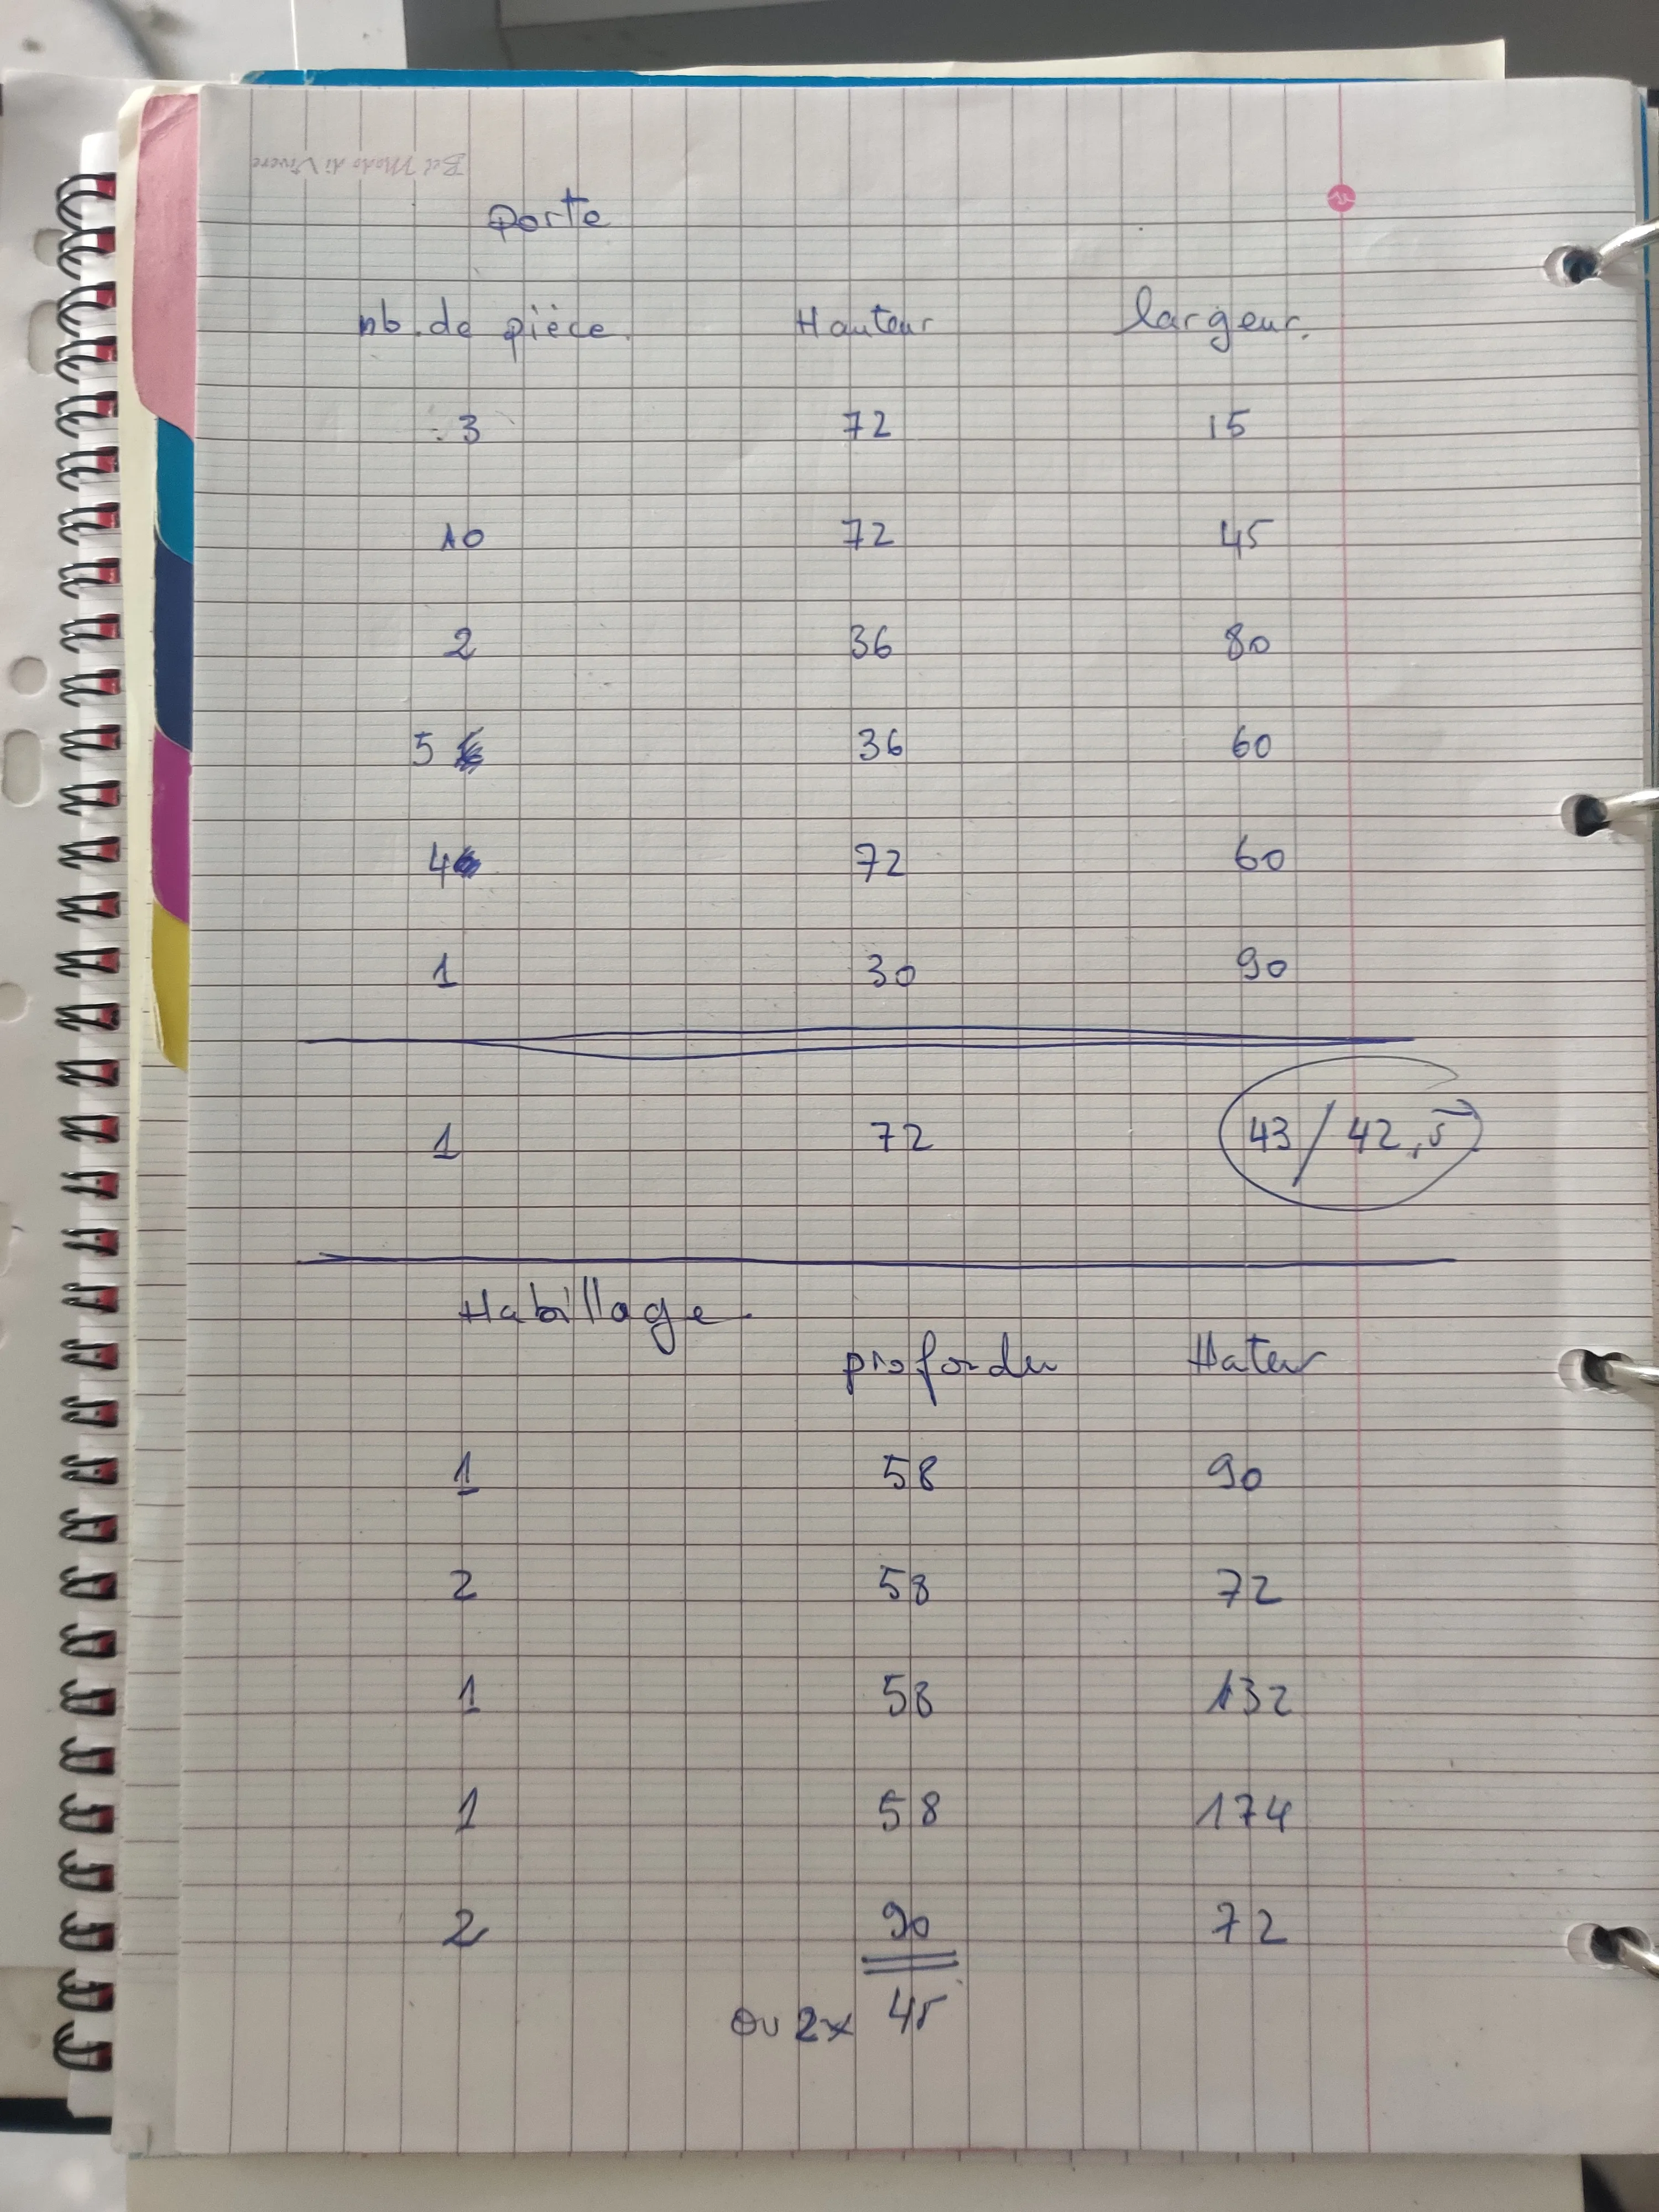 Bel Modo di Vivere
porte
nb. de pièce. Hauteur largeur.
3 72 15
10 72 45
2 36 80
5 36 60
4 72 60
1 30 90
1 72 43 / 42,5
Habillage
profondeu Hateur
1 58 90
2 58 72
1 58 132
1 58 174
2 90 72
ou 2x 45